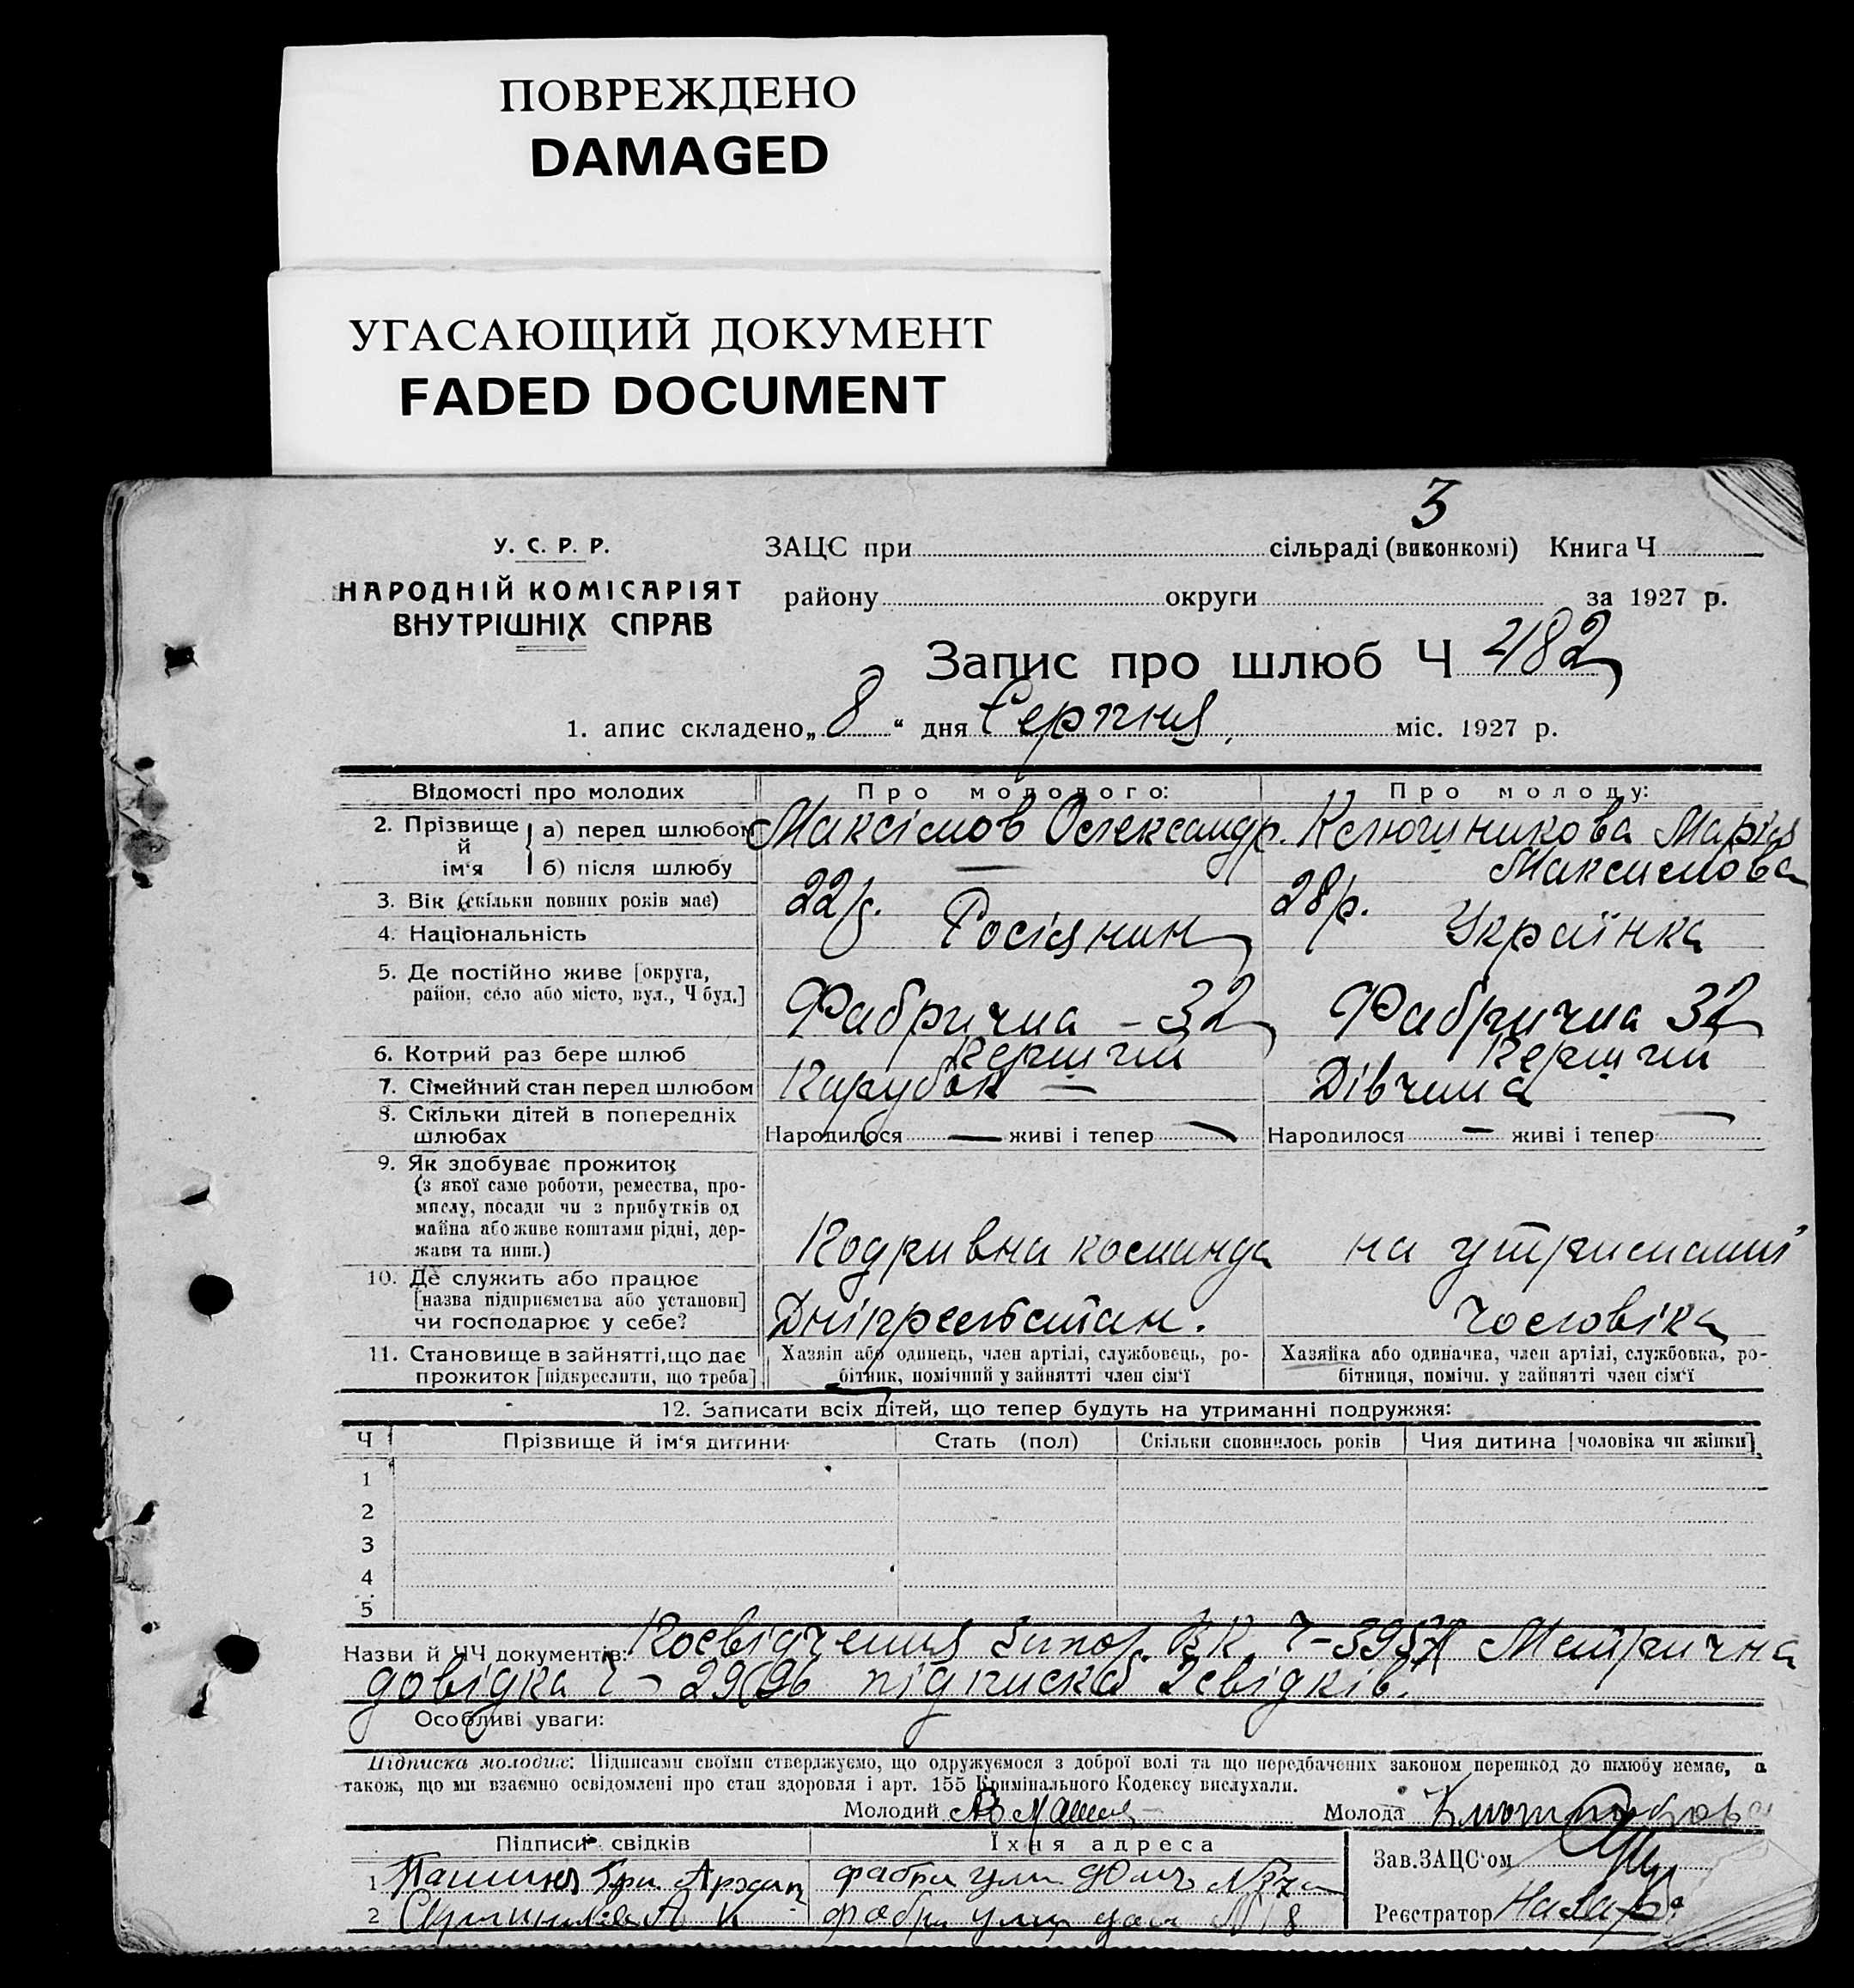 ПОВРЕЖДЕНО
DAMAGED
УГАСАЮЩИЙ ДОКУМЕНТ
FADED DOCUMENT
3
У. С. Р. Р.
НАРОДНІЙ КОМІСАРІЯТ
ВНУТРІШНІХ СПРАВ
ЗАЦС при сільраді (виконкомі) Книга Ч
району округи за 1927 р.
Запис про шлюб Ч 482
1. апис складено „ 8 “ дня Серпня міс. 1927 р.
Відомості про молодих Про молодого: Про молоду:
2. Прізвище й ім‘я а) перед шлюбом Максімов Олександр. Ключникова Марія
б) після шлюбу — Максимова
3. Вік (скільки повних років має) 22 р. 28 р.
4. Національність Росіянин Українка
5. Де постійно живе [округа, район, село або місто, вул., Ч буд.] Фабрична – 32 Фабрична 32
6. Котрий раз бере шлюб Перший Перший
7. Сімейний стан перед шлюбом Парубок — Дівчина
8. Скільки дітей в попередніх шлюбах Народилося — живі і тепер — Народилося — живі і тепер —
9. Як здобуває прожиток
(з якої саме роботи, ремества, про-
мислу, посади чи з прибутків од
майна або живе коштами рідні, дер-
жави та инш.) Подривна команда на утриманні
10. Де служить або працює
[назва підприємства або установи]
чи господарює у себе? чоловіка
11. Становище в зайнятті, що дає прожиток [підкреслити, що треба]
Хазяїн або одинець, член артілі, службовець, ро-
бітник, помічний у зайнятті член сім‘ї
Хазяйка або одиначка, член артілі, службовка, ро-
бітниця, помічн. у зайнятті член сім‘ї
12. Записати всіх дітей, що тепер будуть на утриманні подружжя:
Ч Прізвище й ім‘я дитини Стать (пол) Скільки сповнилось років Чия дитина [чоловіка чи жінки]
1
2
3
4
5
Назви й ЧЧ документів: Посвідчення Запор. Метрична
довідка Ч підписка 2 свідків.
Особливі уваги:
Підписка молодих: Підписами своїми стверджуємо, що одружуємося з доброї волі та що передбачених законом перешкод до шлюбу немає, а
також, що ми взаємно освідомлені про стан здоровля і арт. 155 Кримінального Кодексу вислухали.
Молодий Молода
Підписи свідків Їхня адреса
Зав. ЗАЦС‘ом
1
2 8
Реєстратор